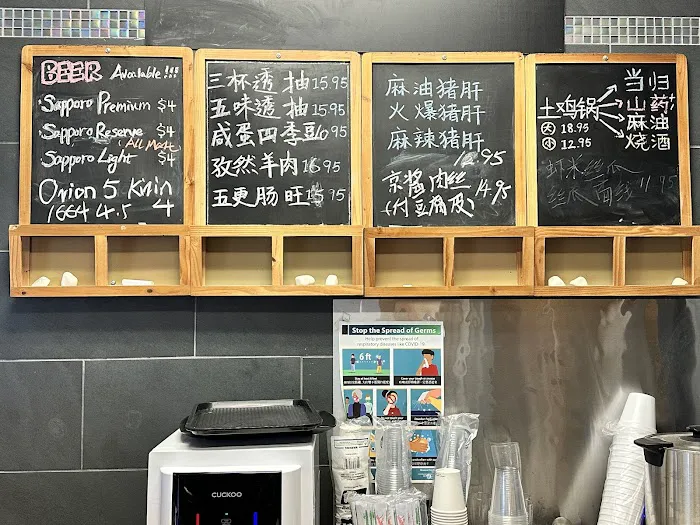 BEER Available!!!
Sapporo Premium $4
Sapporo Reserve $4
(All Malt)
Sapporo Light $4
Orion 5 Kirin
1664 4.5 4
三杯透抽 15.95
五味透抽 15.95
咸蛋四季豆 10.95
孜然羊肉 16.95
五更肠旺 15.95
麻油猪肝
火爆猪肝
麻辣猪肝
12.95
京酱肉丝 14.95
(付豆腐皮)
土鸡锅
大 18.95
小 12.95
当归
山药
麻油
烧酒
虾米丝瓜
丝瓜面线 11.95
Stop the Spread of Germs
Help prevent the spread of
respiratory diseases like COVID-19
6 ft
CUCKOO